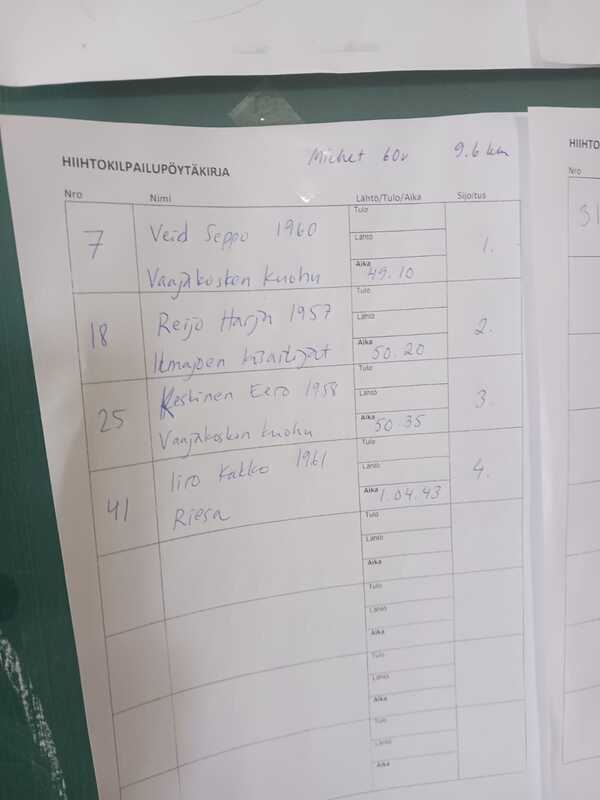 HIIHTOKILPAILUPÖYTÄKIRJA
Miehet 60v 9.6 km
Nro Nimi Lähtö/Tulo/Aika Sijoitus
7 Veid Seppo 1960 Tulo 1.
Lähtö
Vaajakosken Kuohu Aika 49.10
18 Reijo Harja 1957 Tulo 2.
Lähtö
Ilmajoen Kisailijat Aika 50.20
25 Keskinen Eero 1958 Tulo 3.
Lähtö
Vaajakosken Kuohu Aika 50.35
41 Iiro Kakko 1961 Tulo 4.
Lähtö
Riesa Aika 1.04.43
Tulo
Lähtö
Aika
Tulo
Lähtö
Aika
Tulo
Lähtö
Aika
Tulo
Lähtö
Aika
HIIHTO
Nro